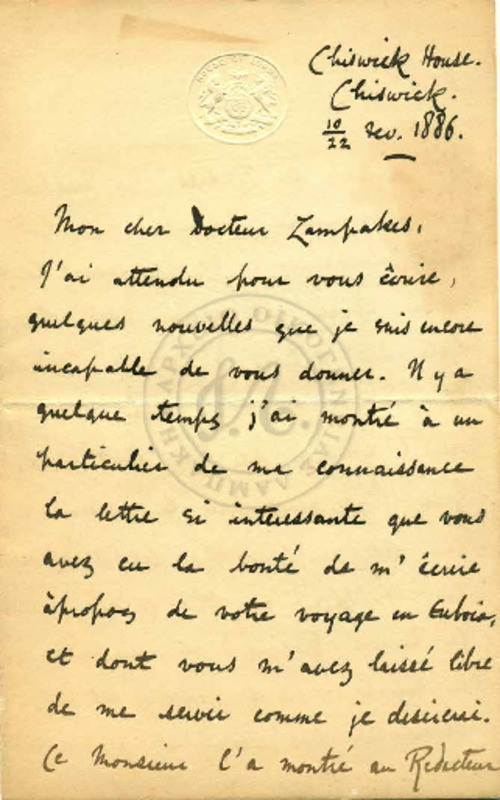 HOUSE OF LORDS
Chiswick House.
Chiswick.
10/22 Nov. 1886.
Mon cher Docteur Zampakes,
J'ai attendu pour vous écrire,
quelques nouvelles que je suis encore
incapable de vous donner. Il y a
quelque temps j'ai montré à un
particulier de ma connaissance
la lettre si interessante que vous
avez eu la bonté de m'écrire
àpropos de votre voyage en Euboia,
et dont vous m'avez laissé libre
de me servir comme je desirerai.
Ce Monsieur l'a montré au Redacteur
ΑΡΧΕΙΟ ΟΙΚΟΓΕΝΕΙΑΣ ΛΑΜΠΑΚΗ